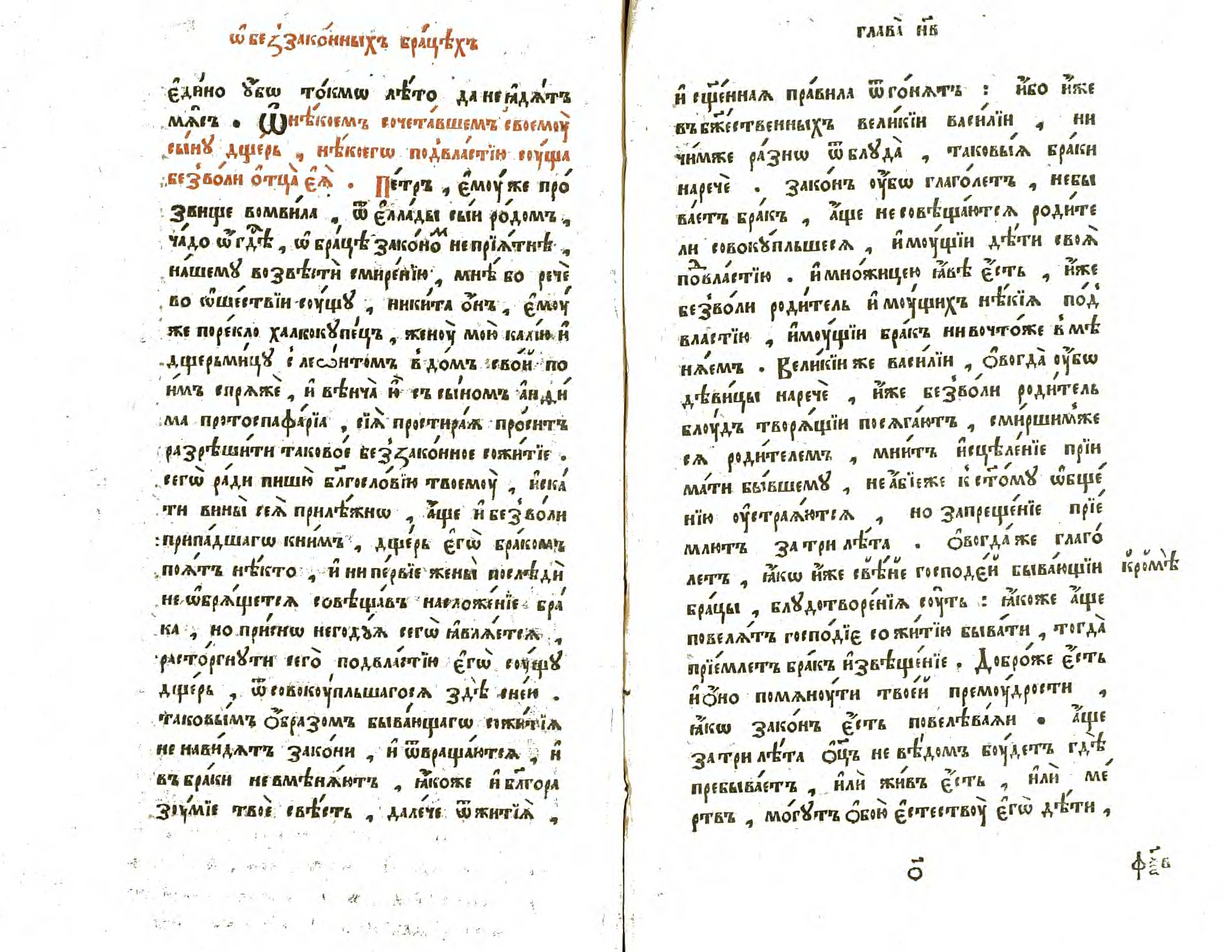 ѡ҆ беззако́нныхъ бра́цѣхъ
є҆ди́но ᲂу҆́бѡ то́кмѡ лѣ́то да не ꙗ҆дѧ́тъ
мѧ́съ . Ѿ нѣ́коемъ сочета́вшемъ своемоу̀
сы́нꙋ дще́рь , нѣ́коегѡ под̾вла́стїю соу́ща
без̾во́ли о҆тца̀ є҆ѧ̀ . Пе́тръ , є҆моу́же про́
звище вомви́ла , ѿ є҆лла́ды сы́и ро́домъ ,
ча́до ѡ҆ гдⷭ҇ѣ , ѡ҆ бра́цѣ зако́ноⷨ непрїѧ́тнѣ ,
на́шемꙋ возвѣстѝ смире́нїю , мнѣ́ бо речѐ
во ѡ҆ше́ствїи соу́щꙋ , ники́та ѻ҆́нъ , є҆моу́
же поре́кло халкокꙋпе́цъ , женоу̀ мою̀ калю̀ и҆
дще́рь мицꙋ с̾ лео́нтомъ в̾ до́мъ сво́й по
и́мъ спрѧжѐ , и҆ вѣнча̀ ю҆̀ съ сы́номъ а҆нѳи
ма протоспафа́рїа , сїѧ̀ простира́ѧ про́ситъ
разрѣши́ти таково́е беззако́нное сожи́тїе .
сегѡ̀ ра́ди пишю̀ бл҃гослові́ю твоемоу̀ , и҆ска́
ти вины̀ сеѧ̀ прилѣ́жнѡ , а҆́ще и҆ без̾во́ли
припа́дшагѡ кни́мъ , дще́рь є҆гѡ̀ бра́комъ
поѧ́тъ нѣ́кто , и҆ ни пе́рвїе жены̀ послѣдѝ
не ѡ҆брѧ́щетсѧ совѣща́въ насложе́нїе бра́
ка , но при́снѡ негодꙋ́ѧ сегѡ̀ ꙗ҆влѧ́етсѧ ,
расто́ргнути сего̀ под̾вла́стїю є҆гѡ̀ соу́щꙋ
дще́рь , ѿ совокоу́пльшагосѧ здѣ̀ сне́ю .
таковы́мъ ѻ҆́бразомъ быва́ющагѡ сожи́тїѧ
не нави́дѧтъ зако́ни , и҆ ѿвраща́ютсѧ , и҆
въ бра́ки не вмѣнѧ́ютъ , ꙗ҆́коже и҆ бл҃гора
зоу́мїе твоѐ свѣ́сть , дале́че ѿ жи́тїѧ ,
глава̀ н҃в
и҆ сщ҃е́ннаѧ пра́вила ѿго́нѧтъ : и҆́бо и҆́же
въ бж҃е́ственныхъ вели́кїи васи́лїи , ни
чи́мже ра́знѡ ѿ блꙋда̀ , таковы́ѧ бра́ки
наречѐ . зако́нъ ᲂу҆́бѡ глаго́летъ , небы
ва́етъ бра́къ , а҆́ще не совѣща́ютсѧ роди́те
ли совокꙋ́пльшеесѧ , и҆моу́щїи дѣ́ти своѧ̀
поⷣвла́стїю . и҆ мно́жицею ꙗ҆́вѣ є҆́сть , и҆́же
без̾во́ли роди́тель и҆моу́щихъ нѣ́кїѧ под̾
вла́стїю , и҆моу́щїи бра́къ ни во что́же в̾мѣ
нѧ́ем . Вели́кїи же васи́лїи , ѻ҆вогда̀ ᲂу҆́бѡ
дѣви́цы наречѐ , и҆́же без̾во́ли роди́тель
блоу́дъ творѧ́щїи посѧга́ютъ , смири́шимже
сѧ роди́телемъ , мни́тъ и҆сцѣле́нїе прїи
ма́ти бы́вшемꙋ , не а҆́бїеже к̾ сто́мꙋ ѡ҆бще́
нїю ᲂу҆страѧ́ютсѧ , но запреще́нїе прїе́
млютъ за три лѣ́та . Ѻ҆вогда́же глаго́
летъ , ꙗ҆́кѡ и҆́же свѣ́не господе́й быва́ющїи кромѣ̀
бра́цы , блꙋдотворе́нїѧ соу́ть : ꙗ҆́коже а҆́ще
повелѧ́тъ госпо́дїе сожи́тїю быва́ти , тогда̀
прїе́млетъ бра́къ и҆звѣще́нїе . Добро́же є҆́сть
и҆ ѻ҆́но помѧноу́ти твое́й премоу́дрости ,
ꙗ҆́кѡ зако́нъ є҆́сть повелѣва́ѧи . а҆́ще
за три лѣ́та ѻ҆ц҃ъ не вѣ́домъ боу́детъ гдѣ̀
пребыва́етъ , и҆лѝ жи́въ є҆́сть , и҆лѝ ме́
ртвъ , мо́гꙋтъ ѻ҆бою̀ є҆стествоу̀ є҆гѡ̀ дѣ́ти ,
ѻ҃